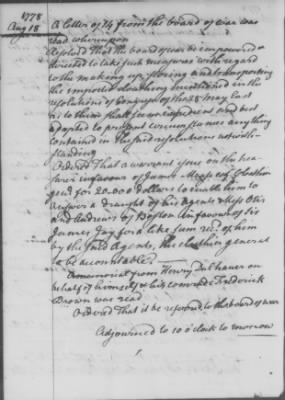 1778
Aug 18
A letter of 14 from the board of war was
read whereupon
Resolved That the board of war be impowered &
directed to take such measures with regard
to the making up, storing and transporting
the imported cloathing mentioned in the
resolutions of Congress of the 28 May last
as to them shall seem expedient and best
adapted to present circumstances any thing
contained in the said resolutions notwith-
standing
Ordered That a warrant issue on the trea-
surer in favour of James Mease Esqr cloathier
genl for 20.000 dollars to enable him to
answer a draught of his agents Messrs Otis
and Andrews of Boston in favour of Sir
James Jay for a like sum recd of him
by the said Agents, the cloathier general
to be accountable.
A memorial from Henry on
behalf of himself & his comrade Frederick
Brown was read
Ordered That it be referred to the board of war
Adjourned to 10 o'Clock to morrow